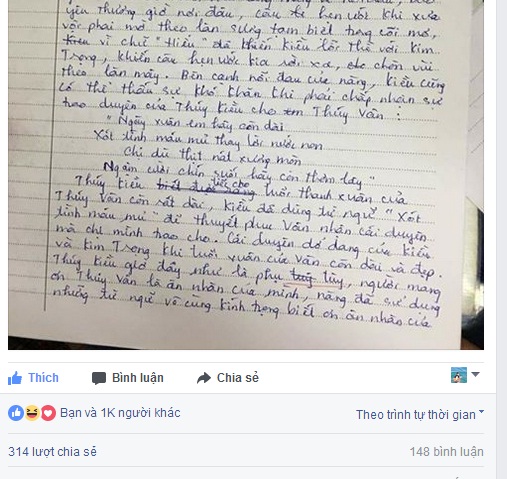 yêu thương giờ nơi đâu, câu hẹn ước khi xưa
vội phai mờ theo làn sương tạm biệt trong cõi mơ,
vì chữ "Hiếu" đã khiến kiều lỗi thề với kim
Trọng, khiến câu hẹn ước kia rời xa, chôn vùi
theo làn mây. Bên cạnh nỗi đau của nàng, kiều cũng
có thể thấu sự khó khăn khi phải chấp nhận sự
trao duyên của Thúy kiều cho Thúy Vân :
"Ngày xuân em hãy còn dài
Xót tình máu mủ thay lời nước non
Chị dù thịt nát xương mòn
Ngậm cười chín suối hãy còn thơm lây"
Thúy kiều biết cho tuổi thanh xuân của
Thúy Vân còn rất dài, kiều đã dùng từ ngữ "Xót
tình máu mủ" để thuyết phục Vân nhận cái duyên
mà chị mình trao cho. Cái duyên dở dang của kiều
và kim Trọng khi tuổi xuân của Vân còn dài và đẹp.
Thúy kiều giờ đây như là phụ tùy, người mang
ơn Thúy Vân là ân nhân của mình, nàng đã sử dụng
những từ ngữ vô cùng kính trọng biết ơn ân nhân của
Thích Bình luận Chia sẻ
Bạn và 1K người khác Theo trình tự thời gian
314 lượt chia sẻ 148 bình luận